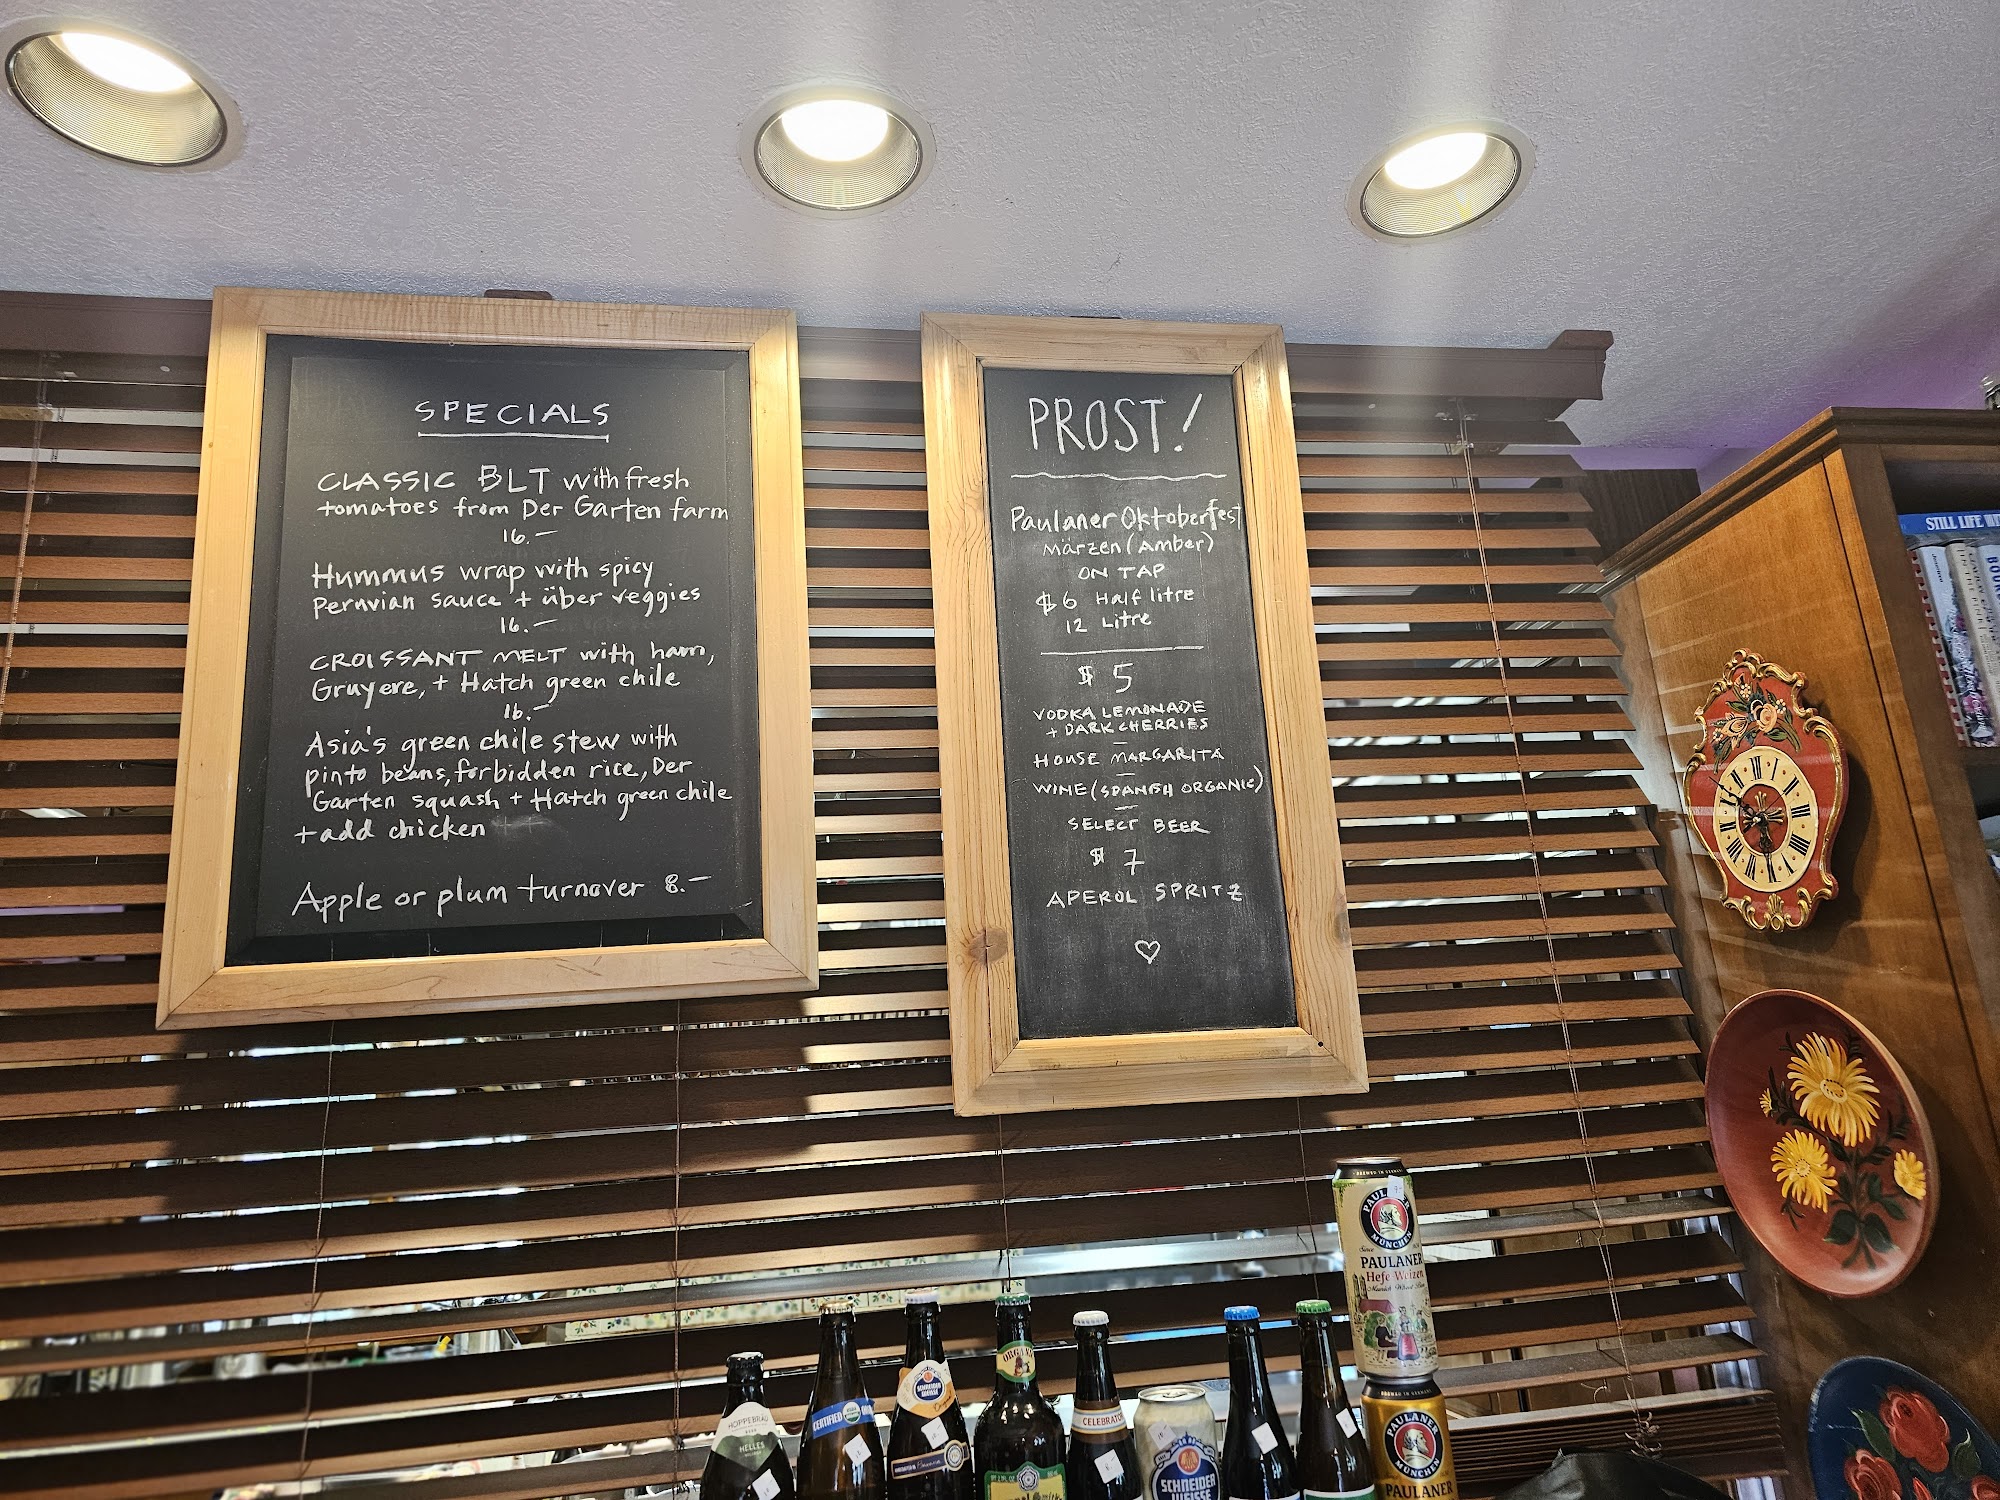 SPECIALS
CLASSIC BLT with fresh
tomatoes from Der Garten farm
16.—
Hummus wrap with spicy
Peruvian sauce + über veggies
16.—
CROISSANT MELT with ham,
Gruyere, + Hatch green chile
16.—
Asia's green chile stew with
pinto beans, forbidden rice, Der
Garten squash + Hatch green chile
+ add chicken
Apple or plum turnover 8.—
PROST!
Paulaner Oktoberfest
Märzen (Amber)
ON TAP
$6 Half litre
12 Litre
$5
VODKA LEMONADE
+ DARK CHERRIES
—
HOUSE MARGARITA
—
WINE (SPANISH ORGANIC)
—
SELECT BEER
$7
APEROL SPRITZ
STILL LIFE
XII I II III IIII V VI VII VIII IX X XI
BREWED IN GERMANY
PAULANER
MÜNCHEN
PAULANER
Hefe Weizen
HOPPEBRÄU
HELLES
CERTIFIED
USDA
SCHNEIDER
WEISSE
ORGANIC
CELEBRATOR
SCHNEIDER
WEISSE
PAULANER
MÜNCHEN
PAULANER